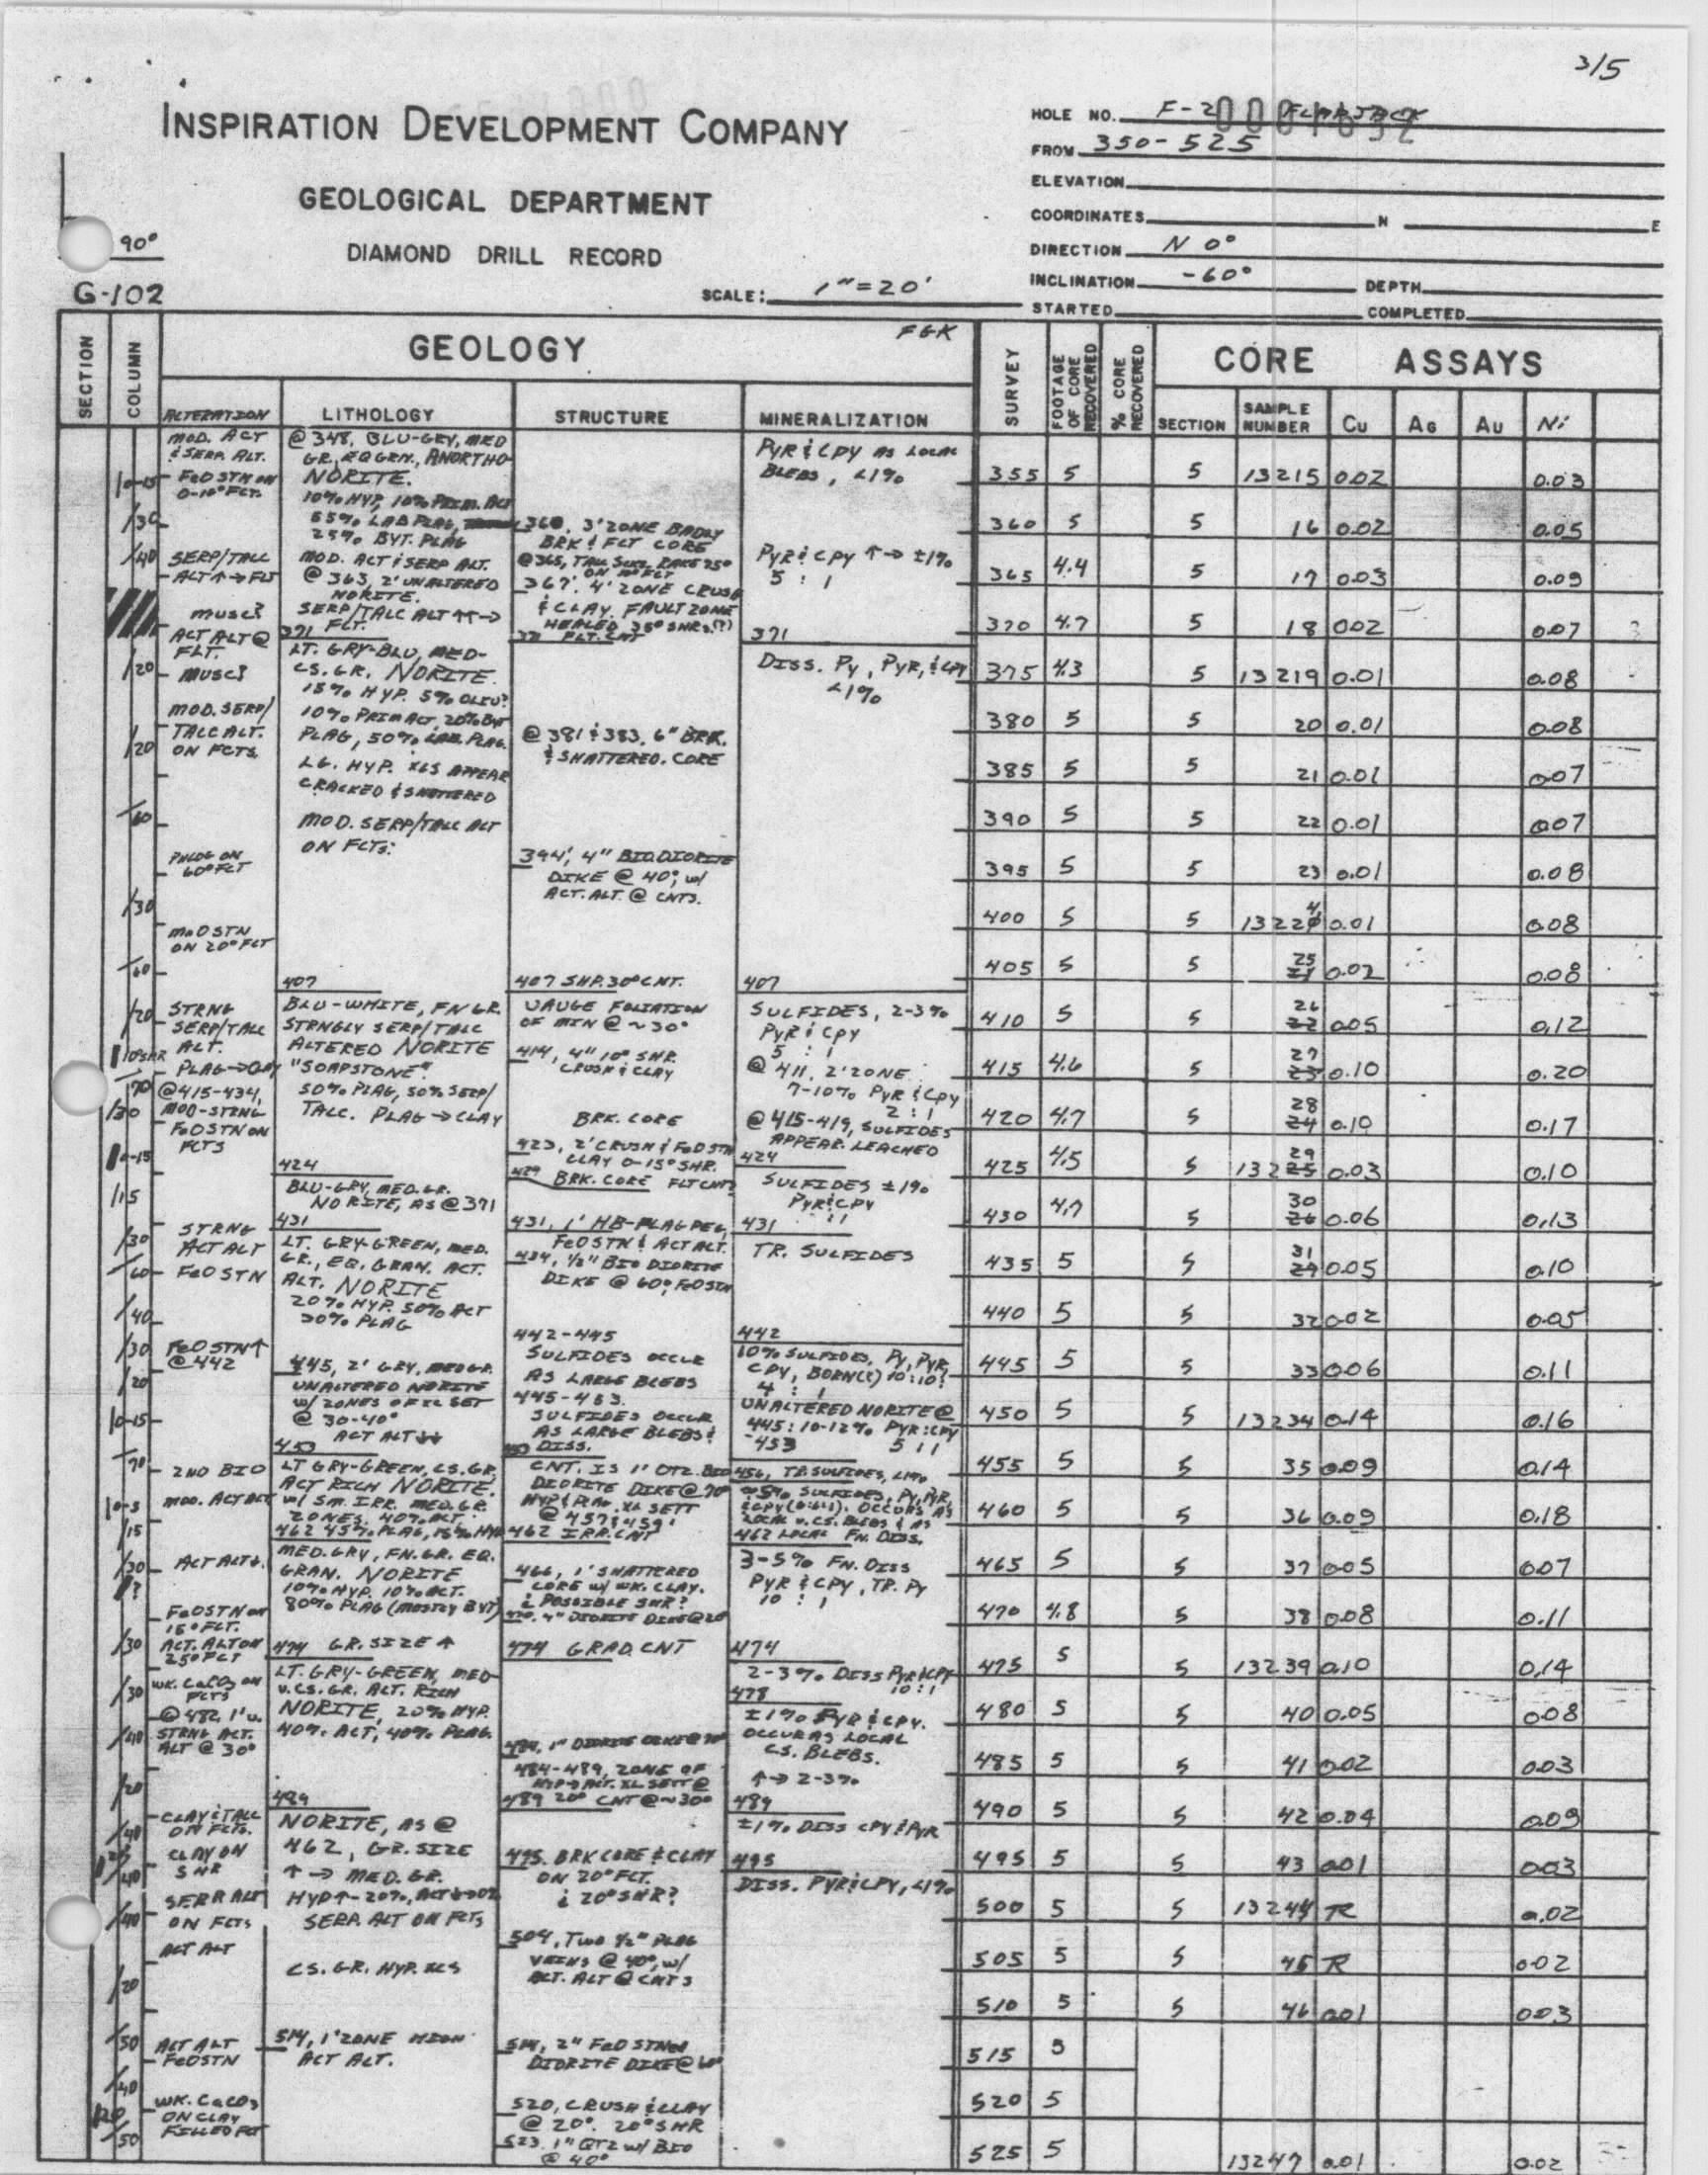 3/5
INSPIRATION DEVELOPMENT COMPANY
GEOLOGICAL DEPARTMENT
DIAMOND DRILL RECORD
90°
G-102
SCALE: 1"=20'
HOLE NO. F-2 FLAPJACK
FROM 350-525
ELEVATION
COORDINATES N E
DIRECTION N 0°
INCLINATION -60° DEPTH
STARTED COMPLETED
SECTION
COLUMN
GEOLOGY FGK
ALTERATION LITHOLOGY STRUCTURE MINERALIZATION
SURVEY
FOOTAGE OF CORE RECOVERED
% CORE RECOVERED
CORE ASSAYS
SECTION SAMPLE NUMBER Cu Ag Au Ni
MOD. ACT
& SERP. ALT.
FeO STN ON
0-10° FCT.
SERP/TALC
ALT ↑→ FLT
MUSC?
ACT ALT @
FLT.
MUSC?
MOD. SERP/
TALC ALT.
ON FCTS.
PHLOG ON
60° FCT
MnO STN
ON 20° FCT
STRNG
SERP/TALC
ALT.
PLAG→CLAY
@415-434,
MOD-STRNG
FeO STN ON
FCTS
STRNG
ACT ALT
FeO STN
FeO STN↑
@442
2ND BIO
MOD. ACT ALT
ACT ALT↓.
FeO STN ON
15° FCT.
ACT. ALT ON
25° FCT
WK. CaCO3 ON
FCTS
@ 482, 1' V.
STRNG ACT.
ALT @ 30°
CLAY & TALC
ON FCTS.
CLAY ON
SHR
SERP. ALT
ON FCTS
ACT ALT
ACT ALT
FeO STN
WK. CaCO3
ON CLAY
FILLED FCT
@ 348, BLU-GRY, MED
GR., EQ GRN., ANORTHO-
NORITE.
10% HYP, 10% PRIM. ACT
55% LAB PLAG,
25% BYT. PLAG
MOD. ACT & SERP ALT.
@ 363, 2' UNALTERED
NORITE.
SERP/TALC ALT ↑↑→
371 FLT.
LT. GRY-BLU, MED-
CS. GR. NORITE.
15% HYP. 5% OLIV?
10% PRIM ACT, 20% BYT
PLAG, 50% LAB. PLAG.
LG. HYP. XLS APPEAR
CRACKED & SHATTERED
MOD. SERP/TALC ALT
ON FCTS.
407
BLU-WHITE, FN GR.
STRNGLY SERP/TALC
ALTERED NORITE
"SOAPSTONE".
50% PLAG, 50% SERP/
TALC. PLAG → CLAY
424
BLU-GRY, MED. GR.
NORITE, AS @ 371
431
LT. GRY-GREEN, MED.
GR., EQ. GRAN. ACT.
ALT. NORITE
20% HYP. 50% ACT
30% PLAG
445, 2' GRY, MED GR.
UNALTERED NORITE
W/ ZONES OF XL SET
@ 30-40°
ACT ALT↓↓
453
LT GRY-GREEN, CS. GR.
ACT RICH NORITE.
W/ SM. IRR. MED. GR.
ZONES. 40% ACT,
462 45% PLAG, 15% HYP
MED. GRY, FN. GR. EQ.
GRAN. NORITE
10% HYP. 10% ACT.
80% PLAG (MOSTLY BYT)
474 GR. SIZE ↑
LT. GRY-GREEN, MED-
V. CS. GR. ACT. RICH
NORITE, 20% HYP.
40% ACT, 40% PLAG.
489
NORITE, AS @
462, GR. SIZE
↑ → MED. GR.
HYP↑-20%,
SERP. ALT ON FCTS
CS. GR. HYP. XLS
514, 1' ZONE HIGH
ACT ALT.
360, 3' ZONE BADLY
BRK & FCT CORE
@ 365, TALC SLKS, RAKE 25°
367, 4' ZONE CRUSH
& CLAY. FAULT ZONE
HEALED 35° SHRS.(?)
371 FLT. CNT
@ 381 & 383, 6" BRK.
& SHATTERED. CORE
394', 4" BIO DIORITE
DIKE @ 40°, W/
ACT. ALT. @ CNTS.
407 SHP. 30° CNT.
VAUGE FOLIATION
OF MIN @ ~30°
414, 4" 10° SHR.
CRUSH & CLAY
BRK. CORE
423, 2' CRUSH & FeO STN
CLAY 0-15° SHR.
BRK. CORE FLT CNT?
431, 1' HB-PLAG PEG,
FeO STN & ACT ALT.
434, 1/2" BIO DIORITE
DIKE @ 60°, FeO STN
442-445
SULFIDES OCCUR
AS LARGE BLEBS
445-453.
SULFIDES OCCUR
AS LARGE BLEBS &
453 DISS.
CNT. IS 1" QTZ. BIO
DIORITE DIKE @ 70°
HYP & PLAG. XL SETT
@ 457 & 459'
462 IRR. CNT
466, 1' SHATTERED
CORE W/ WK. CLAY.
¿ POSSIBLE SHR?
470, 4" DIORITE DIKE @ 20°
474 GRAD. CNT
484-489, ZONE OF
HYP → ACT. XL SETT @
489 20° CNT @ ~30°
495. BRK CORE & CLAY
ON 20° FCT.
¿ 20° SHR?
504, TWO 1/2" PLAG
VEINS @ 40°, W/
ACT. ALT @ CNTS
514, 2" FeO STNED
DIORITE DIKE @ 60°
520, CRUSH & CLAY
@ 20°. 20° SHR
523. 1" QTZ W/ BIO
@ 40°
PYR & CPY AS LOCAL
BLEBS, <1%
PYR & CPY ↑→ ±1%
5 : 1
371
DISS. PY, PYR, & CPY
<1%
407
SULFIDES, 2-3%
PYR & CPY
5 : 1
@ 411, 2' ZONE
7-10% PYR & CPY
2 : 1
@ 415-419, SULFIDES
APPEAR LEACHED
424
SULFIDES ±1%
PYR & CPY
431
TR. SULFIDES
442
10% SULFIDES, PY, PYR,
CPY, BORN(?) 10:10:
4 : 1
UNALTERED NORITE @
445: 10-12% PYR:CPY
-453 5 : 1
456, TR SULFIDES, <1%
~5% SULFIDES, PY, PYR,
& CPY OCCURS AS
LOCAL V. CS. BLEBS & AS
462 LOCAL FN. DISS.
3-5% FN. DISS
PYR & CPY, TR. PY
10 : 1
474
2-3% DISS PYR & CPY
10 : 1
478
±1% PYR & CPY.
OCCUR AS LOCAL
CS. BLEBS.
↑→ 2-3%
489
±1% DISS CPY & PYR
495
DISS. PYR & CPY, <1%
355 5 5 13215 0.02 0.03
360 5 5 16 0.02 0.05
365 4.4 5 17 0.03 0.09
370 4.7 5 18 0.02 0.07
375 4.3 5 13219 0.01 0.08
380 5 5 20 0.01 0.08
385 5 5 21 0.01 0.07
390 5 5 22 0.01 0.07
395 5 5 23 0.01 0.08
400 5 5 13224 0.01 0.08
405 5 5 25 0.02 0.08
410 5 5 26 0.05 0.12
415 4.6 5 27 0.10 0.20
420 4.7 5 28 0.10 0.17
425 4.5 5 13229 0.03 0.10
430 4.7 5 30 0.06 0.13
435 5 5 31 0.05 0.10
440 5 5 32 0.02 0.05
445 5 5 33 0.06 0.11
450 5 5 13234 0.14 0.16
455 5 5 35 0.09 0.14
460 5 5 36 0.09 0.18
465 5 5 37 0.05 0.07
470 4.8 5 38 0.08 0.11
475 5 5 13239 0.10 0.14
480 5 5 40 0.05 0.08
485 5 5 41 0.02 0.03
490 5 5 42 0.04 0.09
495 5 5 43 0.01 0.03
500 5 5 13244 TR 0.02
505 5 5 45 TR 0.02
510 5 5 46 0.01 0.03
515 5
520 5
525 5 13247 0.01 0.02